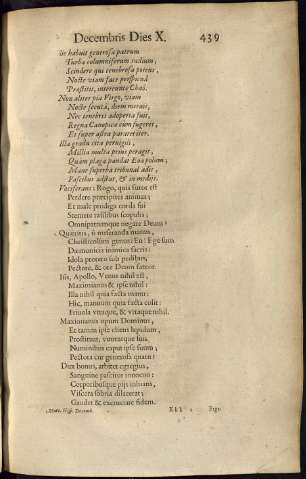 Decembris Dies X. 439
Sic habuit generosa patrum
Turba columniferum radium,
Scindere qui tenebrosa potens,
Nocte viam face perspicua
Praestitit, intereunte Chao.
Non aliter pia Virgo, viam
Nocte secuta, diem meruit,
Nec tenebris adoperta fuit,
Regna Canopica cum fugeret,
Et super astra pararet iter.
Illa gradu cita pervigili,
Millia multa prius peragit,
Quam plaga pandat Eoa polum;
Mane superba tribunal adit,
Fascibus adstat, & in medijs
Vociferans: Rogo, quis furor est
Perdere praecipites animas,
Et male prodiga corda sui
Sternere rasilibus scopulis,
Omnipatremque negare Deum?
Quaeritis, ô miseranda manus,
Christicolûm genus? En! Ego sum
Daemonicis inimica sacris:
Idola protero sub pedibus,
Pectore, & ore Deum fateor.
Isis, Apollo, Venus nihil est,
Maximianus & ipse nihil:
Illa nihil quia facta manu:
Hic, manuum quia facta colit:
Frivola vtraque, & vtraque nihil.
Maximianus opum Dominus,
Et tamen ipse cliens lapidum,
Prostituat, voveatque suis
Numinibus caput ipse suum;
Pectora cur generosa quatit?
Dux bonus, arbiter egregius,
Sanguine pascitur innocuo:
Corporibusque pijs inhians,
Viscera sobria dilacerat;
Gaudet & excruciare fidem.
Mart. Hisp. Decemb. Ergo